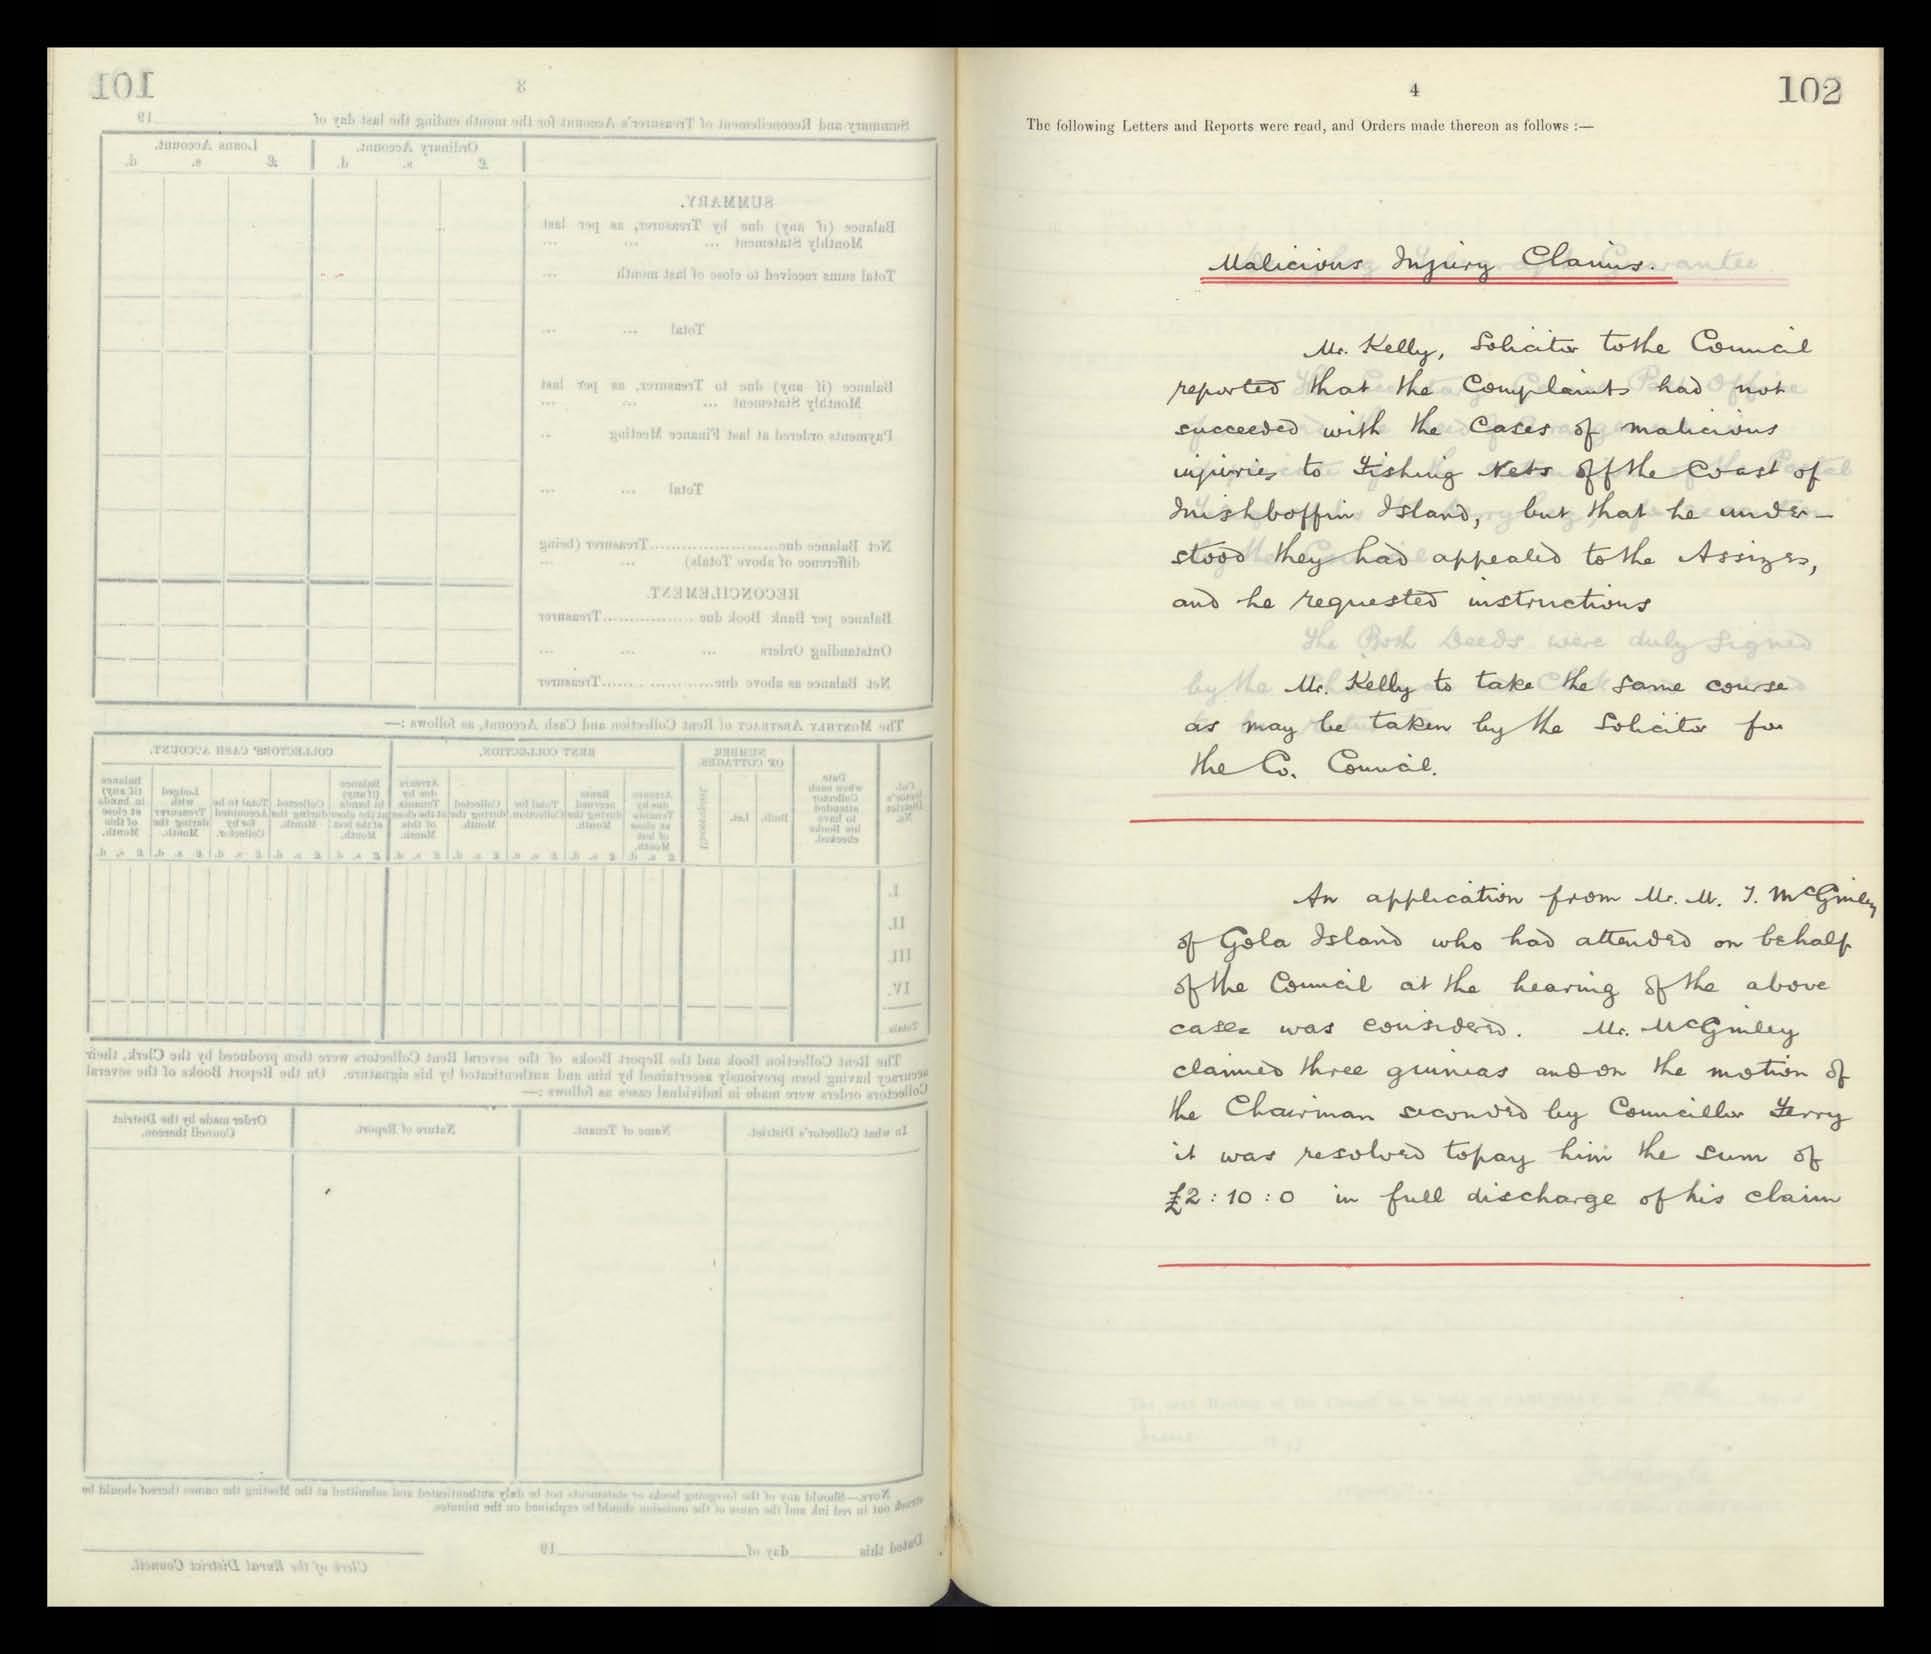 101
3
Summary and Reconcilement of Treasurer's Account for the month ending the last day of 19
Ordinary Account. Loans Account.
£ s. d. £ s. d.
SUMMARY.
Balance (if any) due by Treasurer, as per last
Monthly Statement ... ... ...
Total sums received to close of last month ...
Total ... ...
Balance (if any) due to Treasurer, as per last
Monthly Statement ... ... ...
Payments ordered at last Finance Meeting ...
Total ... ...
Net Balance due........................Treasurer (being
difference of above Totals) ... ...
RECONCILEMENT.
Balance per Bank Book due ..................Treasurer
Outstanding Orders ... ... ...
Net Balance as above due....................Treasurer
The MONTHLY ABSTRACT of Rent Collection and Cash Account, as follows :—
NUMBER OF COTTAGES. RENT COLLECTION. COLLECTORS' CASH ACCOUNT.
I.
II.
III.
IV.
Totals
The Rent Collection Book and the Report Books of the several Rent Collectors were then produced by the Clerk, their
accuracy having been previously ascertained by him and authenticated by his signature. On the Report Books of the several
Collectors orders were made in individual cases as follows :—
In what Collector's District. Name of Tenant. Nature of Report. Order made by the District
Council thereon.
NOTE.—Should any of the foregoing books or statements not be duly authenticated and submitted at the Meeting the names thereof should be
struck out in red ink and the cause of the omission should be explained on the minutes.
Dated this day of 19
Clerk of the Rural District Council.
4
102
The following Letters and Reports were read, and Orders made thereon as follows :—
Malicious Injury Claims.
Mr. Kelly, Solicitor to the Council
reported that the Complaints had not
succeeded with the Cases of malicious
injuries to Fishing Nets off the Coast of
Inishboffin Island, but that he under-
stood they had appealed to the Assizes,
and he requested instructions
Mr. Kelly to take the same course
as may be taken by the Solicitor for
the Co. Council.
An application from Mr. M. J. McGinley
of Gola Island who had attended on behalf
of the Council at the hearing of the above
cases was considered. Mr. McGinley
claimed three guineas and on the motion of
the Chairman seconded by Councillor Ferry
it was resolved to pay him the sum of
£2 : 10 : 0 in full discharge of his claim